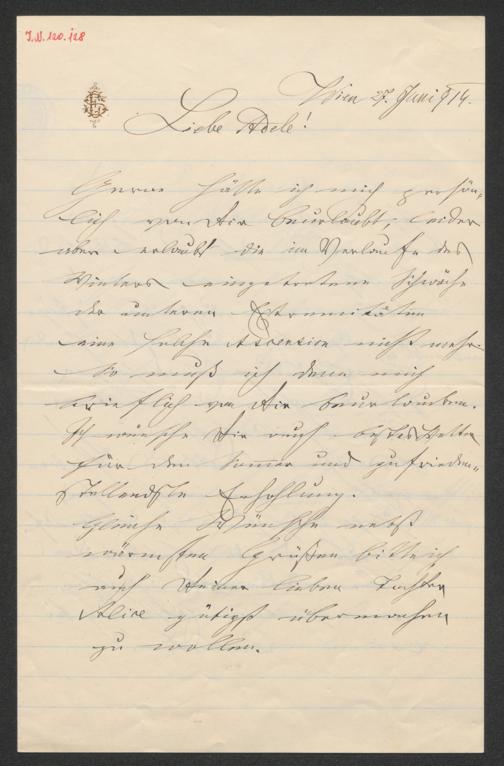 I.N. 120.128
Wien 27. Juni 914.
Liebe Adele!
Gerne hätte ich mich persön-
lich von Dir beurlaubt, leider
aber erlaubt die im Verlaufe des
Winters eingetretene Schwäche
der unteren Extremitäten
eine solche Ascension nicht mehr.
So muß ich denn mich
brieflich von Dir beurlauben.
Ich wünsche Dir auch bestes Wetter
für den Sommer und zufrieden-
stellendste Erholung.
Gleiche Wünsche nebst
wärmsten Grüßen bitte ich
auch Deiner lieben Tochter
Alice gütigst übermachen
zu wollen.